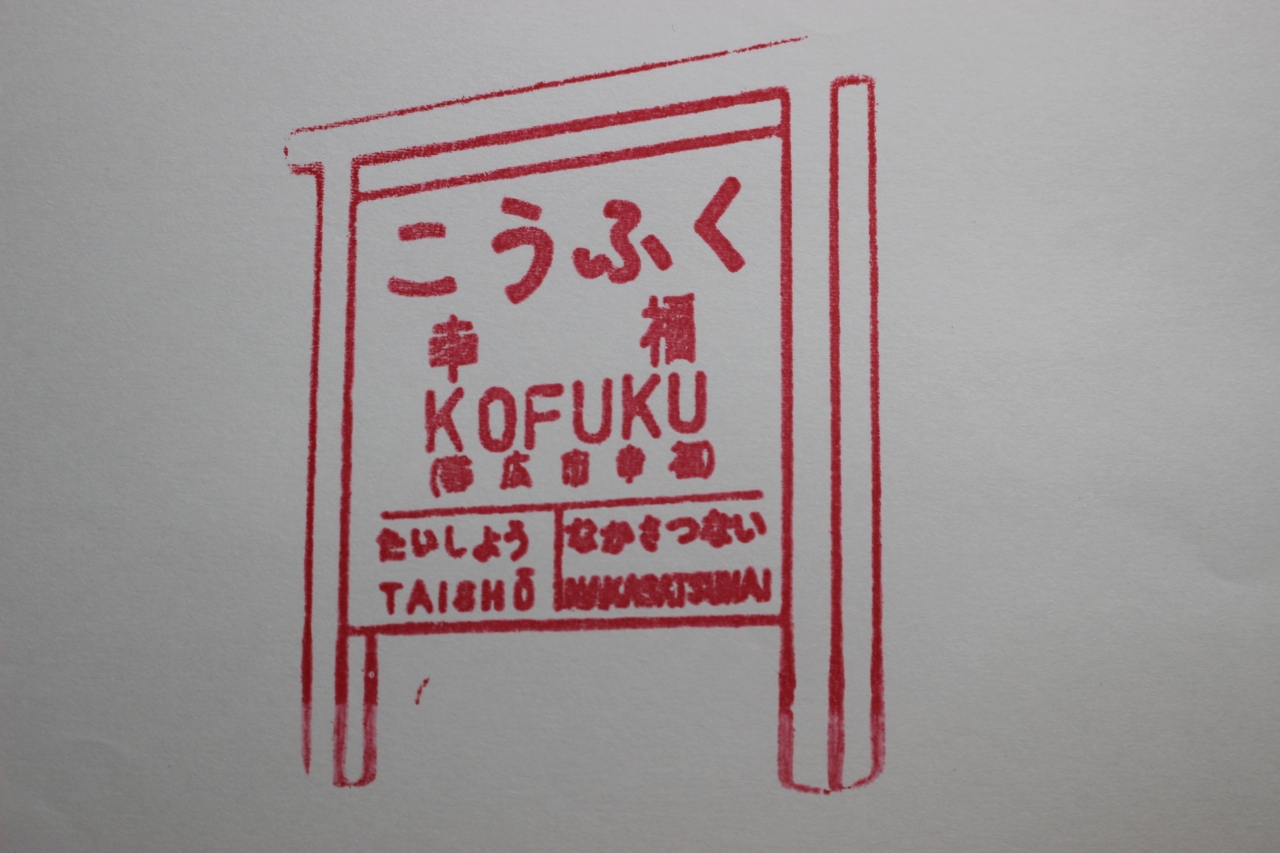 こうふく
幸福
KOFUKU
(帯広市幸福)
たいしよう なかさつない
TAISHŌ NAKASATSUNAI